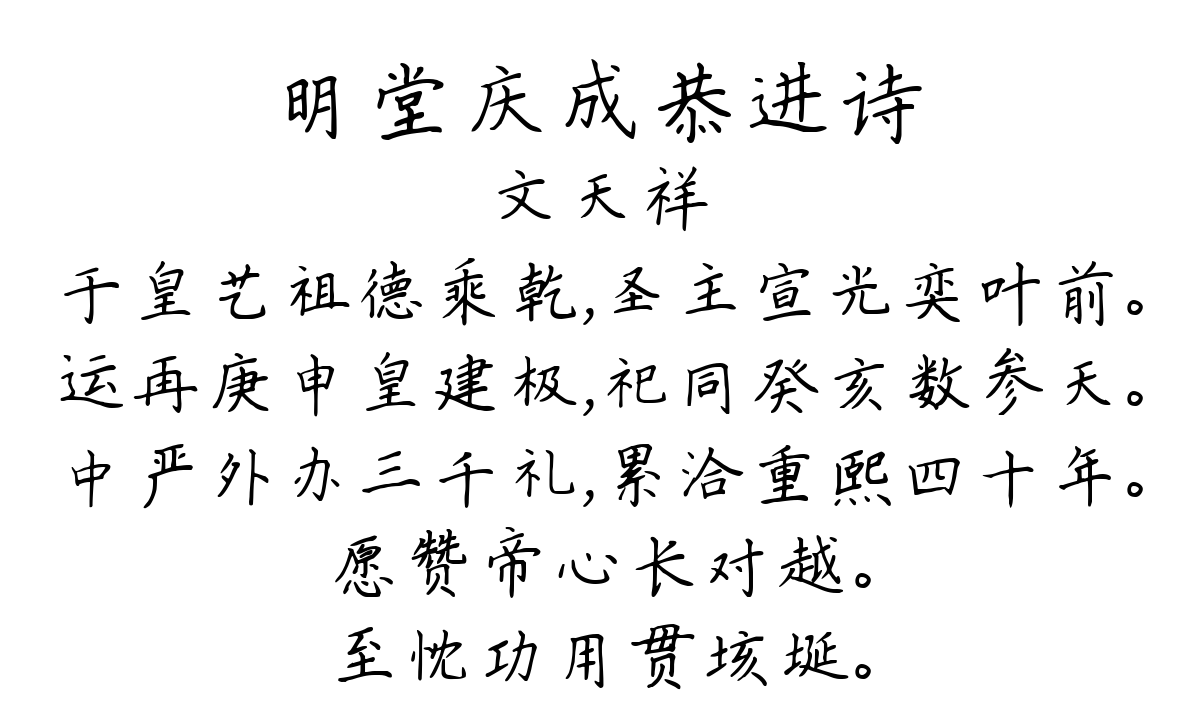 明堂庆成恭进诗
文天祥
于皇艺祖德乘乾,圣主宣光奕叶前。
运再庚申皇建极,祀同癸亥数参天。
中严外办三千礼,累洽重熙四十年。
愿赞帝心长对越。
至忱功用贯垓埏。